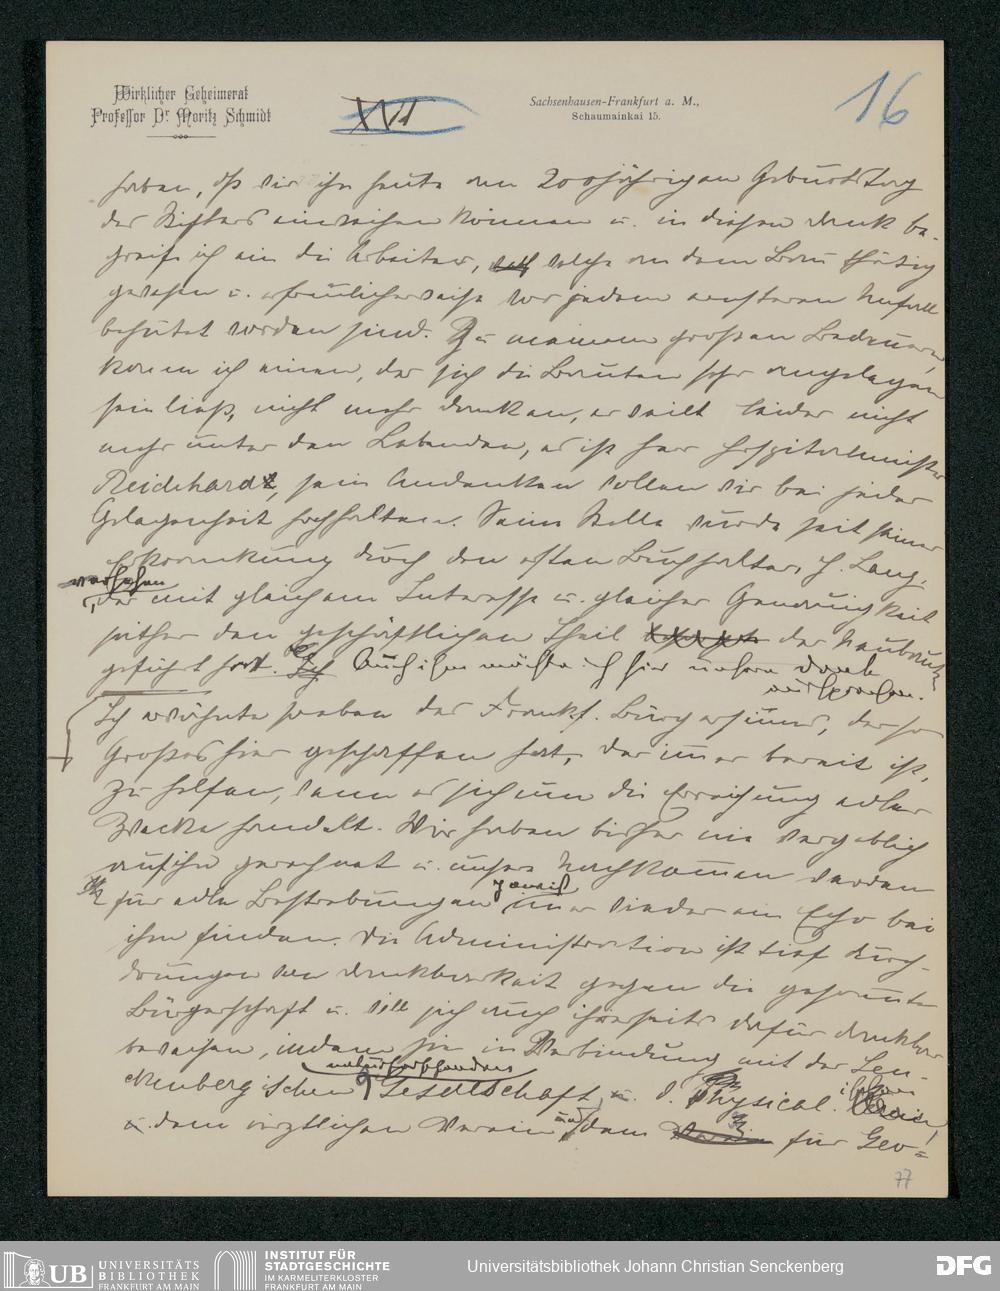 Wirklicher Geheimerat
Professor Dr. Moritz Schmidt
XVII
Sachsenhausen-Frankfurt a. M.,
Schaumainkai 15.
16
haben, daß wir ihn heute am 200jährigen Geburtstag
des Stifters einweihen können u. in diesen Dank be-
greife ich ein die Arbeiter, welche an dem Bau thätig
gewesen u. erfreulicherweise vor jedem ernsteren Unfall
behütet worden sind. Zu meinem großen Bedauern
kann ich einem, der sich die Bauten sehr angelegen
sein ließ, nicht mehr danken, er weilt leider nicht
mehr unter den Lebenden, es ist Herr Hospitalmeister
Reichard, sein Andenken wollen wir bei jeder
Gelegenheit hochhalten. Seine Stelle wurde seit seiner
Erkrankung durch den ersten Buchhalter, H. Lang,
versehen
der mit gleichem Interesse u. gleicher Genauigkeit
seither den geschäftlichen Theil der Neubauten
geführt hat. Auch ihm möchte ich hier unsern Dank
aussprechen.
Ich erwähnte soeben des Frankf. Bürgersinns, der so
Großes hier geschaffen hat, der immer bereit ist,
zu helfen, wenn es sich um die Erreichung edler
Zwecke handelt. Wir haben bisher nie vergeblich
auf ihn gerechnet u. unsere Nachkommen werden
für edle Bestrebungen gewiß immer wieder ein Echo bei
ihm finden. Die Administration ist tief durch-
drungen von Dankbarkeit gegen die gesammte
Bürgerschaft u. will sich auch ihrerseits dafür dankbar
beweisen, indem sie in Verbindung mit der Sen-
naturforschenden
ckenbergischen Gesellschaft, d. Physical. Verein
u. dem ärztlichen Verein und dem für Geo=
77
UB UNIVERSITÄTS
BIBLIOTHEK
FRANKFURT AM MAIN
INSTITUT FÜR
STADTGESCHICHTE
IM KARMELITERKLOSTER
FRANKFURT AM MAIN
Universitätsbibliothek Johann Christian Senckenberg
DFG